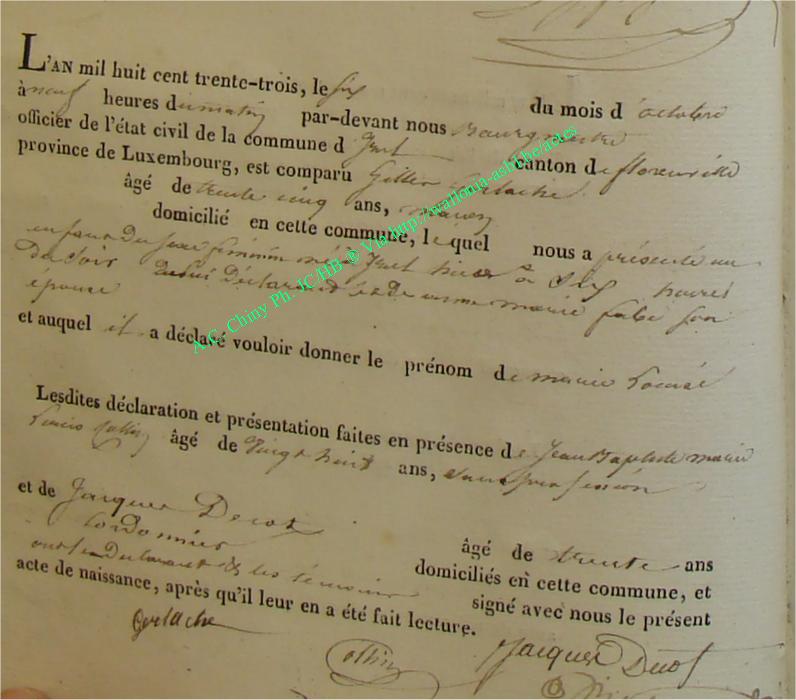 L'AN mil huit cent trente-trois, le six du mois d'octobre
à neuf heures du matin par-devant nous Bourgmestre
officier de l'état civil de la commune d'Izel canton de florenville
province de Luxembourg, est comparu Gerlache
âgé de trente cinq ans,
domicilié en cette commune, lequel nous a présenté un
enfant du sexe feminin né à Izel hier à six heures
du soir de lui Déclarant et de marie son
épouse
et auquel il a déclaré vouloir donner le prénom de marie
Lesdites déclaration et présentation faites en présence de Jean Baptiste marie
Collin âgé de vingt huit ans, sans profession
et de Jacques Decot
Cordonnier âgé de trente ans
domiciliés en cette commune, et
ont le déclarant & les témoins signé avec nous le présent
acte de naissance, après qu'il leur en a été fait lecture.
Gerlache
Collin Jacques Decot
A.C. Chiny Ph. JC.HB ® Via http://wallonia-asbl.be/actes